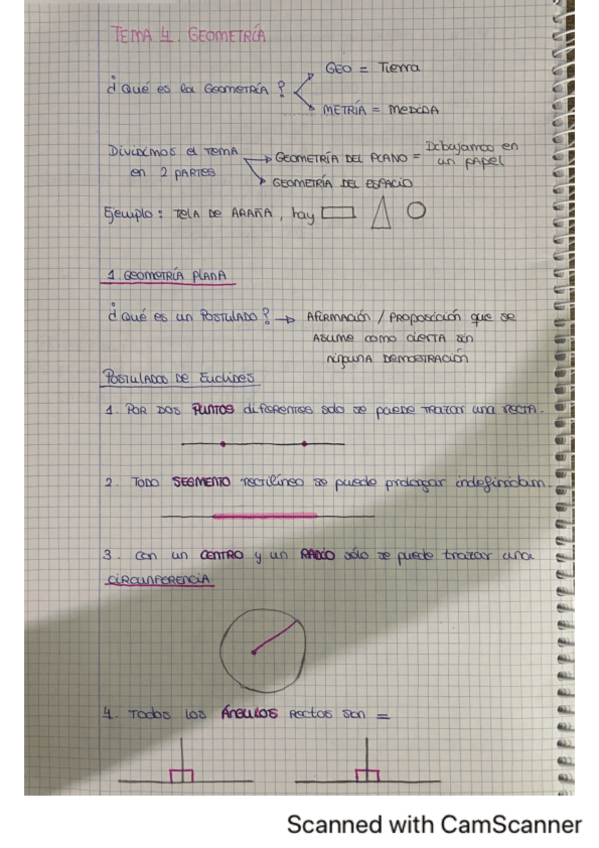 TEMA 4. GEOMETRÍA
GEO = Tierra
¿Qué es la GEOMETRÍA?
METRÍA = MEDIDA
DIVIDIMOS el TEMA
en 2 PARTES
GEOMETRÍA DEL PLANO = Dibujamos en
un papel
GEOMETRÍA DEL ESPACIO
Ejemplo: TELA DE ARAÑA, hay
1. GEOMETRÍA PLANA
¿Qué es un POSTULADO? → AFIRMACIÓN / PROPOSICIÓN que se
ASUME COMO CIERTA sin
ninguna DEMOSTRACIÓN
POSTULADOS DE EUCLIDES
1. POR DOS PUNTOS diferentes solo se puede TRAZAR una RECTA.
2. TODO SEGMENTO rectilíneo se puede prolongar indefinidam.
3. Con un CENTRO y un RADIO sólo se puede trazar una
CIRCUNFERENCIA
4. Todos los ÁNGULOS Rectos son =
Scanned with CamScanner